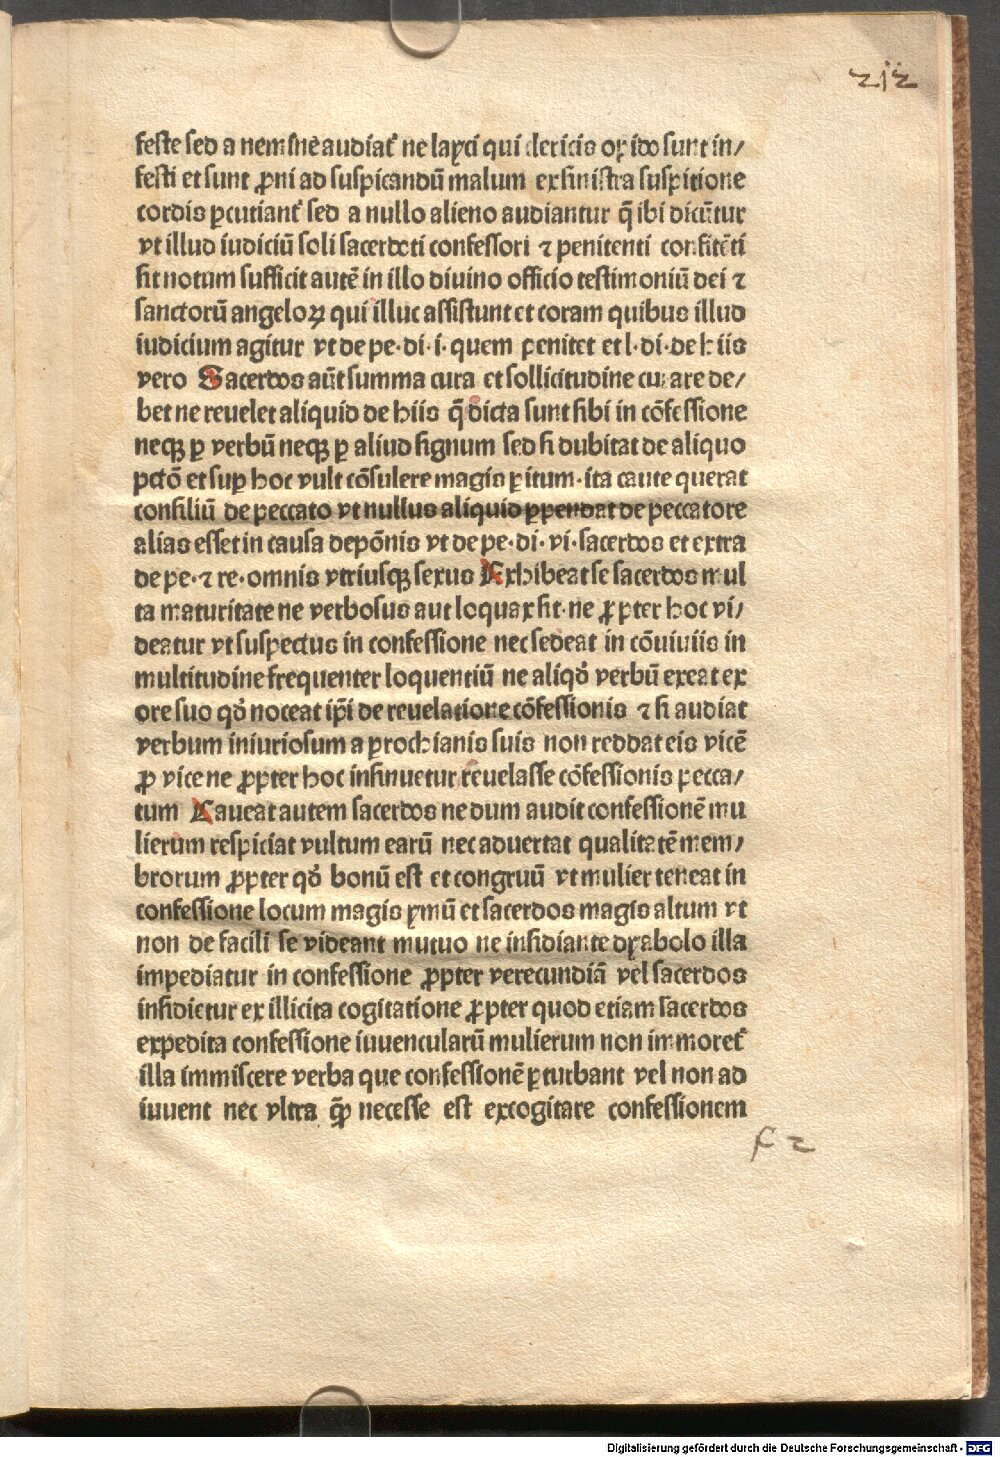 212
feste sed a nemīne audiat᷑ ne layci qui clericis opido sunt in/
festi et sunt ꝓni ad suspicandū malum ex sinistra suspitione
cordis ꝑcutiant᷑ sed a nullo alieno audiantur q̄ ibi dicūtur
vt illud iudiciū soli sacerdoti confessori ⁊ penitenti confitēti
sit notum sufficit autē in illo diuino officio testimoniū dei ⁊
sanctorū angeloꝝ qui illuc assistunt et coram quibus illud
iudicium agitur vt de pe·di·i·quem penitet et l·di·de hiis
vero Sacerdos aūt summa cura et sollicitudine curare de/
bet ne reuelet aliquid de hiis q̄ dicta sunt sibi in cōfessione
neqꝫ ꝑ verbū neqꝫ ꝑ aliud signum sed si dubitat de aliquo
pctō et suꝑ hoc vult cōsulere magis ꝑitum·ita caute querat
consiliū de peccato vt nullus aliquid ꝑpendat de peccatore
alias esset in causa depōnis vt de pe·di·vi·sacerdos et extra
de pe·⁊ re·omnis vtriusqꝫ sexus Exhibeat se sacerdos mul
ta maturitate ne verbosus aut loquax sit·ne ꝓpter hoc vi/
deatur vt suspectus in confessione nec sedeat in cōuiuiis in
multitudine frequenter loquentiū ne aliqđ verbū exeat ex
ore suo qđ noceat ip̄i de reuelatione cōfessionis ⁊ si audiat
verbum iniuriosum a ꝑrochianis suis non reddat eis vicē
ꝓ vice ne ꝓpter hoc insinuetur reuelasse cōfessionis pecca/
tum Caueat autem sacerdos ne dum audit confessionē mu
lierum respiciat vultum earū nec aduertat qualitatē mem/
brorum ꝓpter qđ bonū est et congruū vt mulier teneat in
confessione locum magis ymū et sacerdos magis altum vt
non de facili se videant mutuo ne insidiante dyabolo illa
impediatur in confessione ꝓpter verecundiā vel sacerdos
insidietur ex illicita cogitatione ꝓpter quod etiam sacerdos
expedita confessione iuuencularū mulierum non immoret᷑
illa immiscere verba que confessionē ꝑturbant vel non ad
iuuent nec vltra q̄ꝫ necesse est excogitare confessionem
f 2
Digitalisierung gefördert durch die Deutsche Forschungsgemeinschaft - DFG